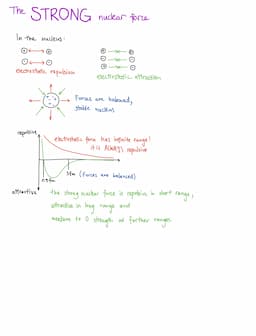 The STRONG nuclear force
In the nucleus:
electrostatic repulsion
electrostatic attraction
Forces are balanced,
stable nucleus
repulsive
electrostatic force has infinite range!
it is ALWAYS repulsive
(Forces are balanced)
attractive
the strong nuclear force is repulsive in short range,
attractive in long range and
weakens to 0 strength at further ranges.